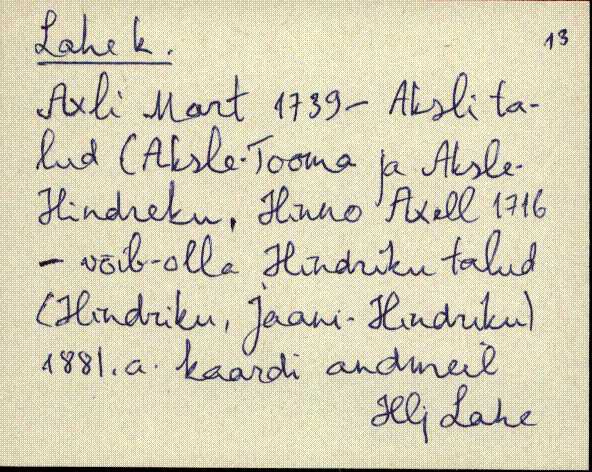 Lahe k.
13
Axli Mart 1739 – Aksli ta-
lud (Aksle-Tooma ja Aksle-
Hindreku, Hinno Axell 1716
– võib-olla Hindriku talud
(Hindriku, Jaani-Hindriku)
1881.a. kaardi andmeil
Hlj Lahe